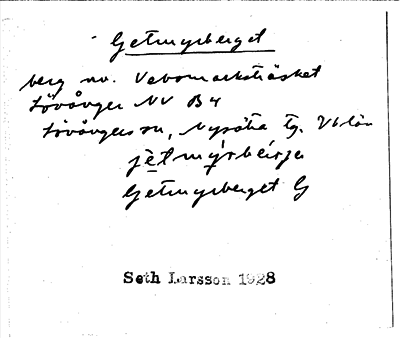 Getmyrberget
berg nv. Vebomarksträsket
Lövånger NV B4
Lövångers sn, Nysätra tg. Vb län
jètmýrbéırje
Getmyrberget G
Seth Larsson 1928